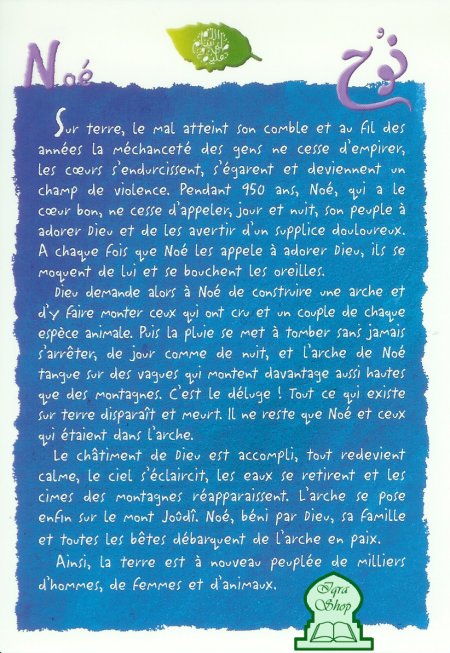 Noé
نُوح
Sur terre, le mal atteint son comble et au fil des
années la méchanceté des gens ne cesse d'empirer,
les cœurs s'endurcissent, s'égarent et deviennent un
champ de violence. Pendant 950 ans, Noé, qui a le
cœur bon, ne cesse d'appeler, jour et nuit, son peuple à
adorer Dieu et de les avertir d'un supplice douloureux.
A chaque fois que Noé les appele à adorer Dieu, ils se
moquent de lui et se bouchent les oreilles.
Dieu demande alors à Noé de construire une arche et
d'y faire monter ceux qui ont cru et un couple de chaque
espèce animale. Puis la pluie se met à tomber sans jamais
s'arrêter, de jour comme de nuit, et l'arche de Noé
tangue sur des vagues qui montent davantage aussi hautes
que des montagnes. C'est le déluge ! Tout ce qui existe
sur terre disparaît et meurt. Il ne reste que Noé et ceux
qui étaient dans l'arche.
Le châtiment de Dieu est accompli, tout redevient
calme, le ciel s'éclaircit, les eaux se retirent et les
cimes des montagnes réapparaissent. L'arche se pose
enfin sur le mont Joûdî. Noé, béni par Dieu, sa famille
et toutes les bêtes débarquent de l'arche en paix.
Ainsi, la terre est à nouveau peuplée de milliers
d'hommes, de femmes et d'animaux.
Iqra
Shop